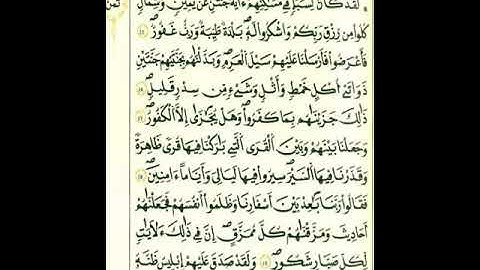 لَقَدْ كَانَ لِسَبَإٍ فِي مَسْكَنِهِمْ ءَايَةٌ جَنَّتَٰنِ عَنْ يَمِينٍ وَشِمَالٍ ثمن
كُلُوا مِن رِّزْقِ رَبِّكُمْ وَاشْكُرُوا لَهُ بَلْدَةٌ طَيِّبَةٌ وَرَبٌّ غَفُورٌ
فَأَعْرَضُوا فَأَرْسَلْنَا عَلَيْهِمْ سَيْلَ الْعَرِمِ وَبَدَّلْنَٰهُم بِجَنَّتَيْهِمْ جَنَّتَيْنِ
ذَوَاتَيْ أُكْلٍ خَمْطٍ وَأَثْلٍ وَشَيْءٍ مِّن سِدْرٍ قَلِيلٍ
ذَٰلِكَ جَزَيْنَٰهُم بِمَا كَفَرُوا وَهَلْ يُجَٰزَىٰ إِلَّا الْكَفُورُ
وَجَعَلْنَا بَيْنَهُمْ وَبَيْنَ الْقُرَى الَّتِي بَٰرَكْنَا فِيهَا قُرًى ظَٰهِرَةً
وَقَدَّرْنَا فِيهَا السَّيْرَ سِيرُوا فِيهَا لَيَالِيَ وَأَيَّامًا ءَامِنِينَ
فَقَالُوا رَبَّنَا بَٰعِدْ بَيْنَ أَسْفَارِنَا وَظَلَمُوا أَنفُسَهُمْ فَجَعَلْنَٰهُمْ
أَحَادِيثَ وَمَزَّقْنَٰهُمْ كُلَّ مُمَزَّقٍ إِنَّ فِي ذَٰلِكَ لَأٓيَٰتٍ
لِّكُلِّ صَبَّارٍ شَكُورٍ وَلَقَدْ صَدَقَ عَلَيْهِمْ إِبْلِيسُ ظَنَّهُ